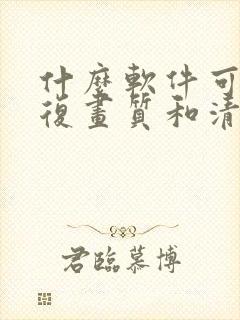 什麼軟件可
復畫質和清
君臨慕博